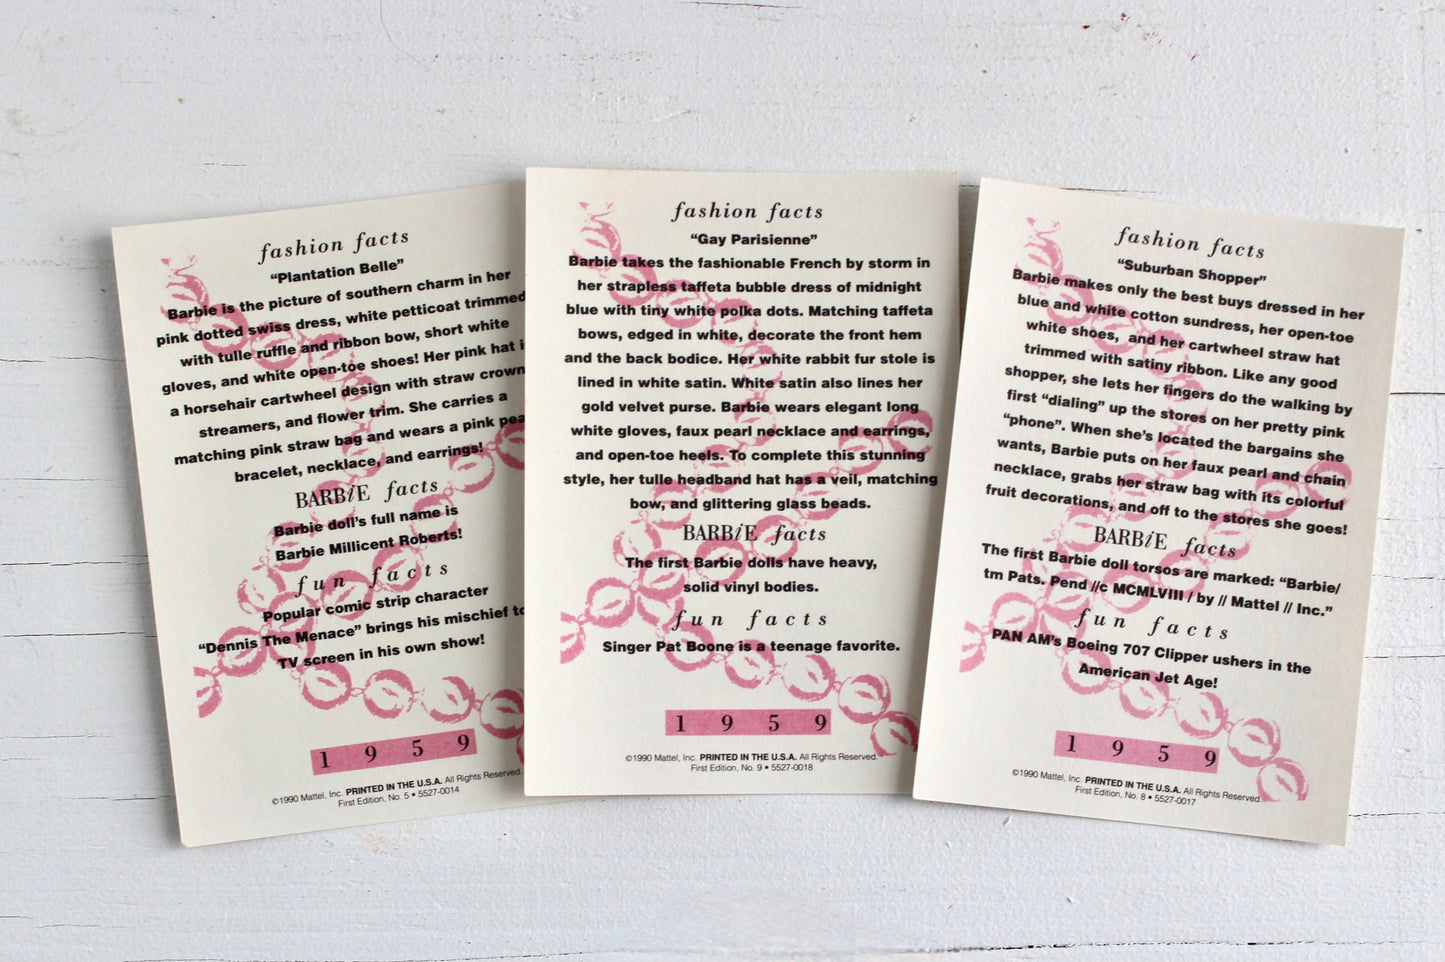 fashion facts
“Plantation Belle”
Barbie is the picture of southern charm in her
pink dotted swiss dress, white petticoat trimmed
with tulle ruffle and ribbon bow, short white
gloves, and white open-toe shoes! Her pink hat i
a horsehair cartwheel design with straw crown
streamers, and flower trim. She carries a
matching pink straw bag and wears a pink pea
bracelet, necklace, and earrings!
BARBiE facts
Barbie doll’s full name is
Barbie Millicent Roberts!
fun facts
Popular comic strip character
“Dennis The Menace” brings his mischief to
TV screen in his own show!
1959
©1990 Mattel, Inc. PRINTED IN THE U.S.A. All Rights Reserved.
First Edition, No. 5 • 5527-0014
fashion facts
“Gay Parisienne”
Barbie takes the fashionable French by storm in
her strapless taffeta bubble dress of midnight
blue with tiny white polka dots. Matching taffeta
bows, edged in white, decorate the front hem
and the back bodice. Her white rabbit fur stole is
lined in white satin. White satin also lines her
gold velvet purse. Barbie wears elegant long
white gloves, faux pearl necklace and earrings,
and open-toe heels. To complete this stunning
style, her tulle headband hat has a veil, matching
bow, and glittering glass beads.
BARBiE facts
The first Barbie dolls have heavy,
solid vinyl bodies.
fun facts
Singer Pat Boone is a teenage favorite.
1959
©1990 Mattel, Inc. PRINTED IN THE U.S.A. All Rights Reserved.
First Edition, No. 9 • 5527-0018
fashion facts
“Suburban Shopper”
Barbie makes only the best buys dressed in her
blue and white cotton sundress, her open-toe
white shoes, and her cartwheel straw hat
trimmed with satiny ribbon. Like any good
shopper, she lets her fingers do the walking by
first “dialing” up the stores on her pretty pink
“phone”. When she’s located the bargains she
wants, Barbie puts on her faux pearl and chain
necklace, grabs her straw bag with its colorful
fruit decorations, and off to the stores she goes!
BARBiE facts
The first Barbie doll torsos are marked: “Barbie/
tm Pats. Pend //c MCMLVIII / by // Mattel // Inc.”
fun facts
PAN AM’s Boeing 707 Clipper ushers in the
American Jet Age!
1959
©1990 Mattel, Inc. PRINTED IN THE U.S.A. All Rights Reserved.
First Edition, No. 8 • 5527-0017